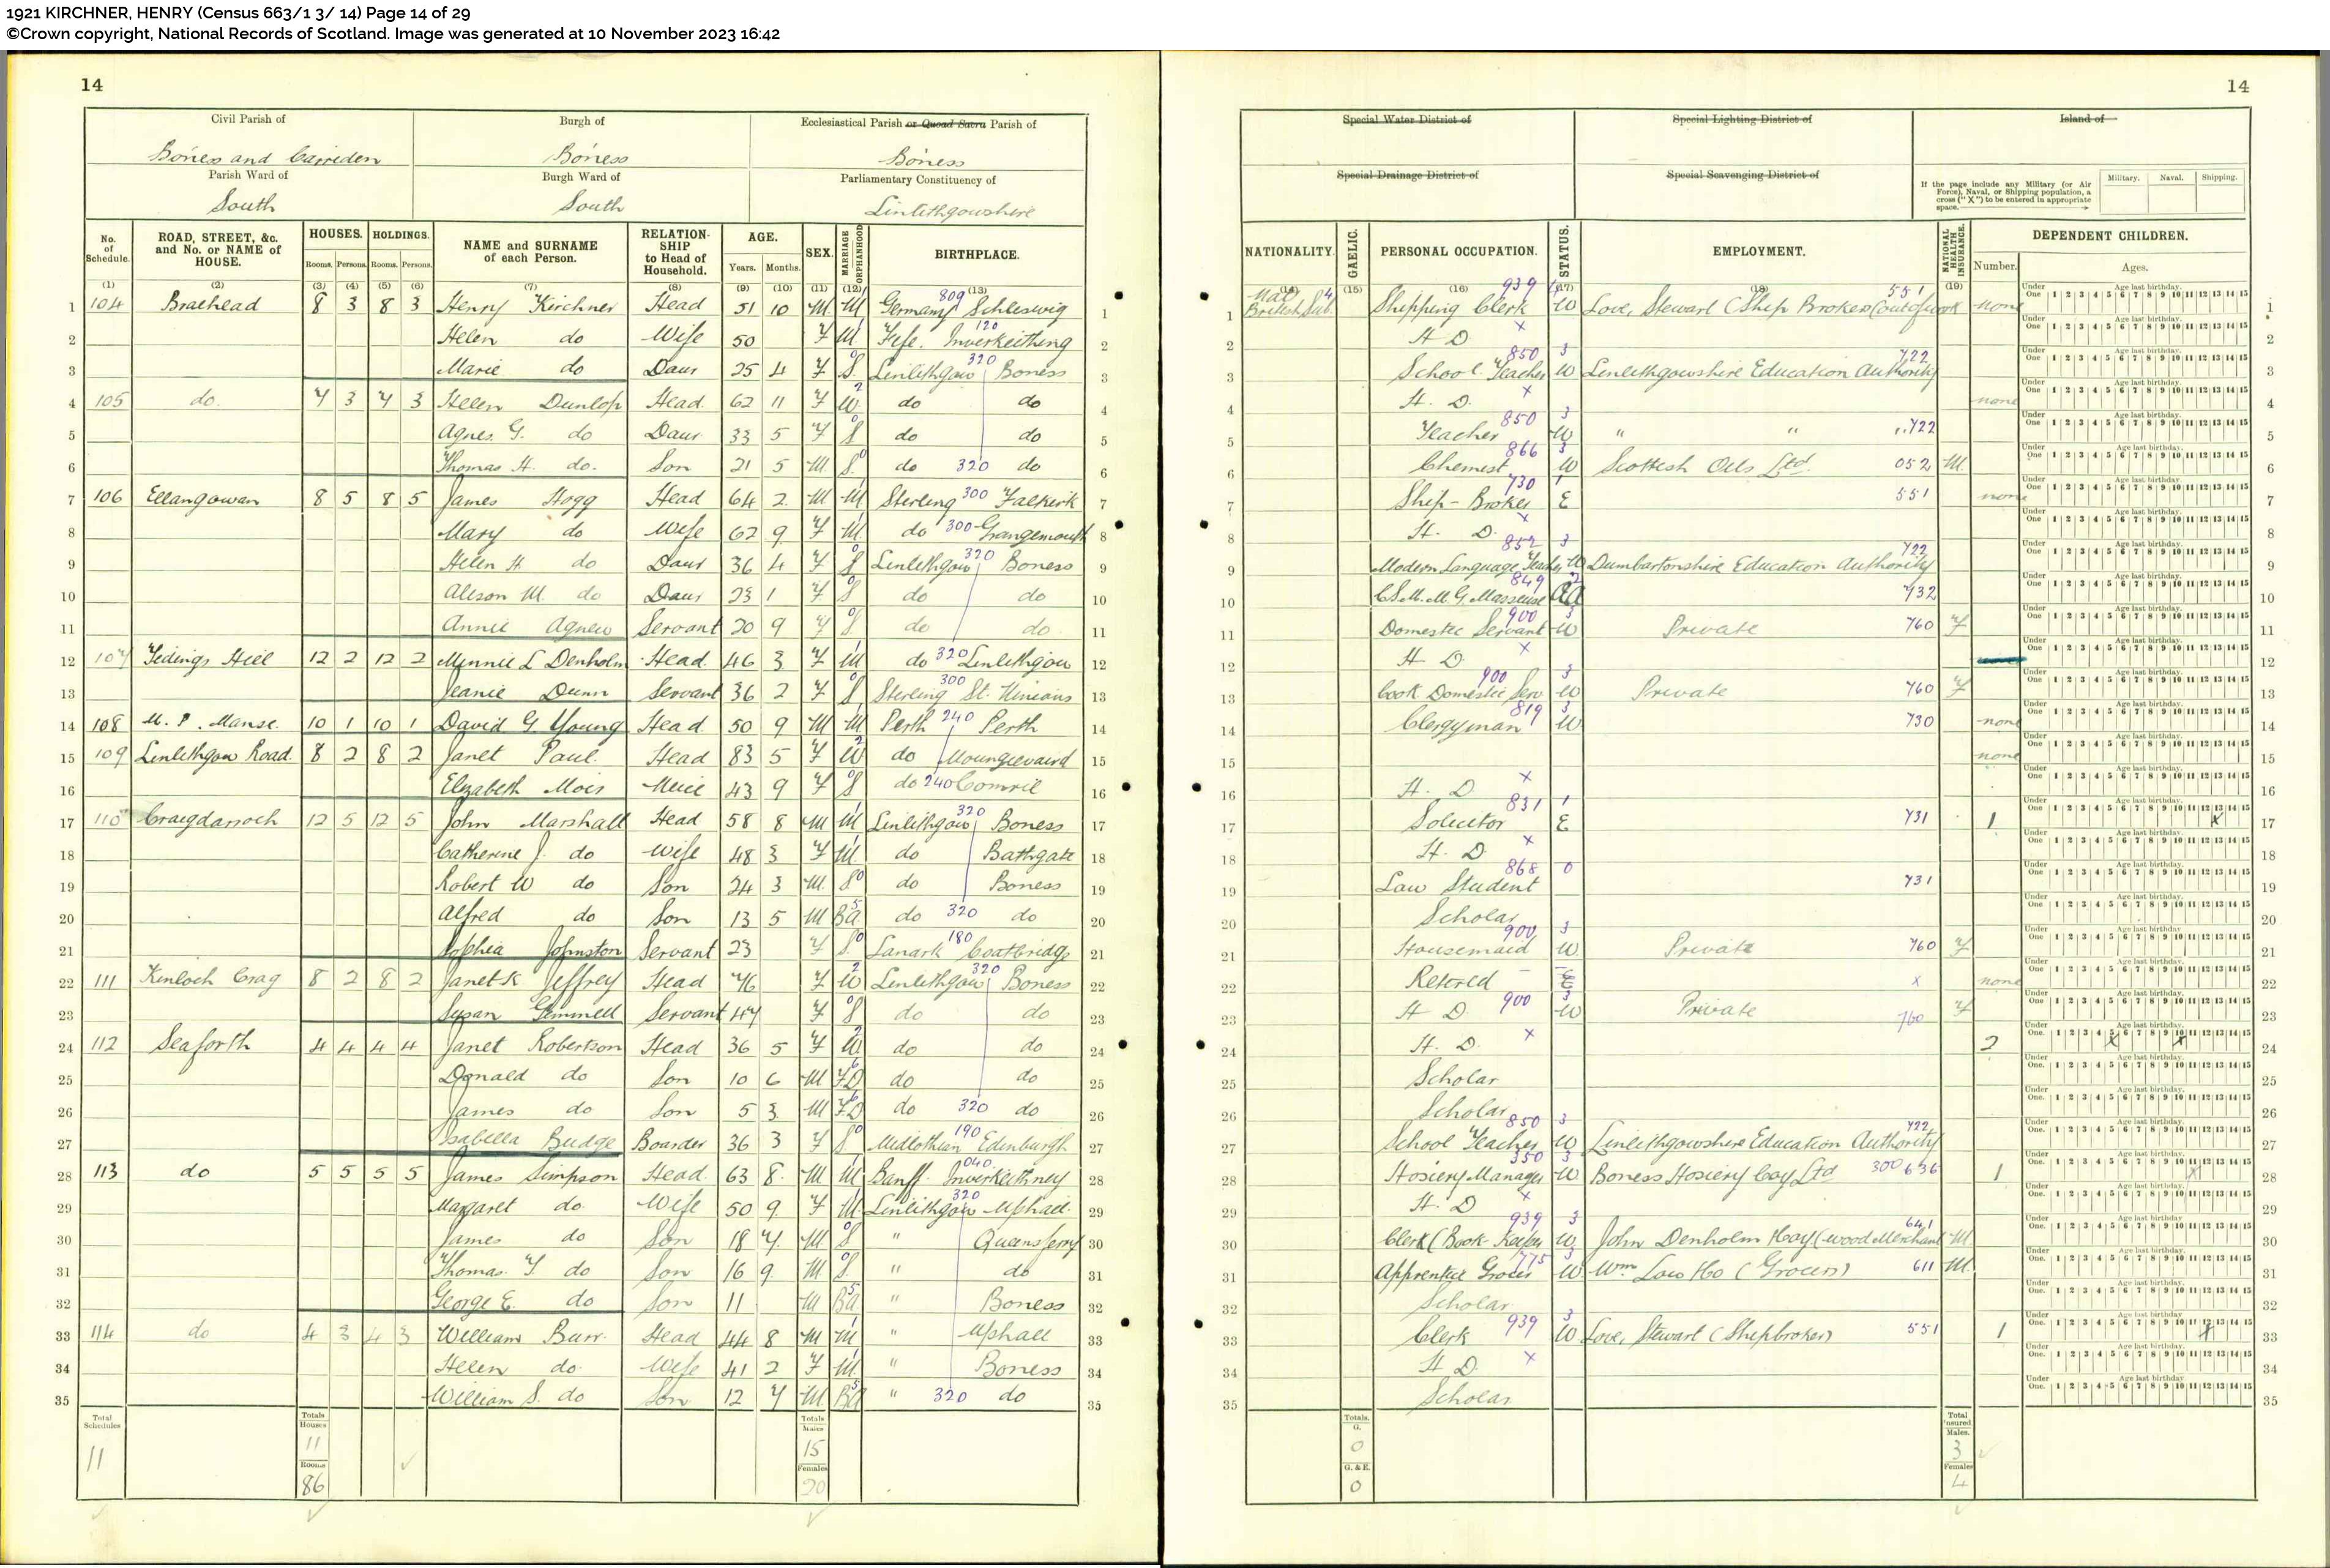 1921 KIRCHNER, HENRY (Census 663/1 3/ 14) Page 14 of 29
©Crown copyright, National Records of Scotland. Image was generated at 10 November 2023 16:42
14
Civil Parish of Burgh of Ecclesiastical Parish or Quoad Sacra Parish of
Boness and Carriden Boness Boness
Parish Ward of Burgh Ward of Parliamentary Constituency of
South South Linlithgowshire
No. of Schedule. ROAD, STREET, &c. and No. or NAME of HOUSE. HOUSES. HOLDINGS. NAME and SURNAME of each Person. RELATIONSHIP to Head of Household. AGE. SEX. MARRIAGE ORPHANHOOD BIRTHPLACE.
Rooms. Persons. Rooms. Persons. Years. Months.
(1) (2) (3) (4) (5) (6) (7) (8) (9) (10) (11) (12) (13)
1 104 Braehead 8 3 8 3 Henry Kirchner Head 51 10 M M Germany 809 Schleswig 1
2 Helen do Wife 50 F M Fife 120 Inverkeithing 2
3 Marie do Daur 25 4 F S Linlithgow 320 Boness 3
4 105 do. 7 3 7 3 Helen Dunlop Head 62 11 F W do do 4
5 Agnes G. do Daur 33 5 F S do do 5
6 Thomas H. do. Son 21 5 M S do 320 do 6
7 106 Ellangowan 8 5 8 5 James Hogg Head 64 2 M M Stirling 300 Falkirk 7
8 Mary do Wife 62 9 F M do 300 Grangemouth 8
9 Helen H do Daur 36 4 F S Linlithgow 320 Boness 9
10 Alison M. do Daur 23 1 F S do do 10
11 Annie Agnew Servant 20 9 F S do do 11
12 107 Tidings Hill 12 2 12 2 Minnie L Denholm Head 46 3 F M do 320 Linlithgow 12
13 Jeanie Dunn Servant 36 2 F S Stirling 300 St. Ninians 13
14 108 U. P. Manse 10 1 10 1 David G. Young Head 50 9 M M Perth 240 Perth 14
15 109 Linlithgow Road 8 2 8 2 Janet Paul Head 83 5 F W do 15
16 Elizabeth Niece 43 9 F S do 240 Comrie 16
17 110 Craigdarroch 12 5 12 5 John Marshall Head 58 8 M M Linlithgow 320 Boness 17
18 Catherine J. do Wife 48 3 F M do Bathgate 18
19 Robert W do Son 24 3 M S do Boness 19
20 Alfred do Son 13 5 M BA do 320 do 20
21 Sophia Johnston Servant 23 F S Lanark 180 Coatbridge 21
22 111 Kinloch Crag 8 2 8 2 Janet K Jeffrey Head 76 F W Linlithgow 320 Boness 22
23 Susan Gemmell Servant 47 F S do do 23
24 112 Seaforth 4 4 4 4 Janet Robertson Head 36 5 F W do do 24
25 Donald do Son 10 6 M FD do do 25
26 James do Son 5 3 M FD do 320 do 26
27 Isabella Budge Boarder 36 3 F S Midlothian 190 Edinburgh 27
28 113 do 5 5 5 5 James Simpson Head 63 8 M M Banff 040 Inverkeithney 28
29 Margaret do Wife 50 9 F M Linlithgow 320 Uphall 29
30 James do Son 18 7 M S " Queensferry 30
31 Thomas Y. do Son 16 9 M S " do 31
32 George E. do Son 11 M BA " Boness 32
33 114 do 4 3 4 3 William Burr Head 44 8 M M " Uphall 33
34 Helen do Wife 41 2 F M " Boness 34
35 William S. do Son 12 7 M BA " 320 do 35
Total Schedules 11
Totals Houses 11
Rooms 86
Totals Males 15
Females 20
14
Special Water District of Special Lighting District of Island of
Special Drainage District of Special Scavenging District of
If the page include any Military (or Air Force), Naval, or Shipping population, a cross ("X") to be entered in appropriate space. Military. Naval. Shipping.
NATIONALITY. GAELIC. PERSONAL OCCUPATION. STATUS. EMPLOYMENT. NATIONAL HEALTH INSURANCE. DEPENDENT CHILDREN.
Number. Ages.
(15) (16) (17) (18) (19)
1 Nat British Sub. Shipping Clerk 939 W Love, Stewart (Ship Broker) (out of work 551 none 1
2 H D x 2
3 School Teacher 850 3 W Linlithgowshire Education Authority 722 3
4 H. D. x none 4
5 Teacher 850 3 W " " " 722 5
6 Chemist 866 3 W Scottish Oils Ltd. 052 M 6
7 Ship-Broker 730 1 E 551 none 7
8 H. D. x 8
9 Modern Language Teacher 852 3 W Dumbartonshire Education Authority 722 9
10 C.S.M.M.G. Masseuse 849 2 OA 732 10
11 Domestic Servant 900 3 W Private 760 F 11
12 H D x 12
13 Cook Domestic Serv 900 3 W Private 760 F 13
14 Clergyman 819 3 W 730 none 14
15 none 15
16 H. D x 16
17 Solicitor 831 1 E 731 1 17
18 H. D x 18
19 Law Student 868 0 731 19
20 Scholar 20
21 Housemaid 900 3 W Private 760 F 21
22 Retired x none 22
23 H D 900 3 W Private 760 F 23
24 H. D. x 2 24
25 Scholar 25
26 Scholar 26
27 School Teacher 850 3 W Linlithgowshire Education Authority 722 27
28 Hosiery Manager 350 3 W Boness Hosiery Coy Ltd 300 636 1 28
29 H. D x 29
30 Clerk (Book-Keeper 939 3 W John Denholm Hay (wood Merchant 641 M 30
31 Apprentice Grocer 775 3 W Wm Low & Co (Grocers) 611 M 31
32 Scholar 32
33 Clerk 939 3 W Love, Stewart (Shipbroker) 551 1 33
34 H D x 34
35 Scholar 35
Totals. G. 0
G. & E. 0
Total Insured Males. 3
Females 4